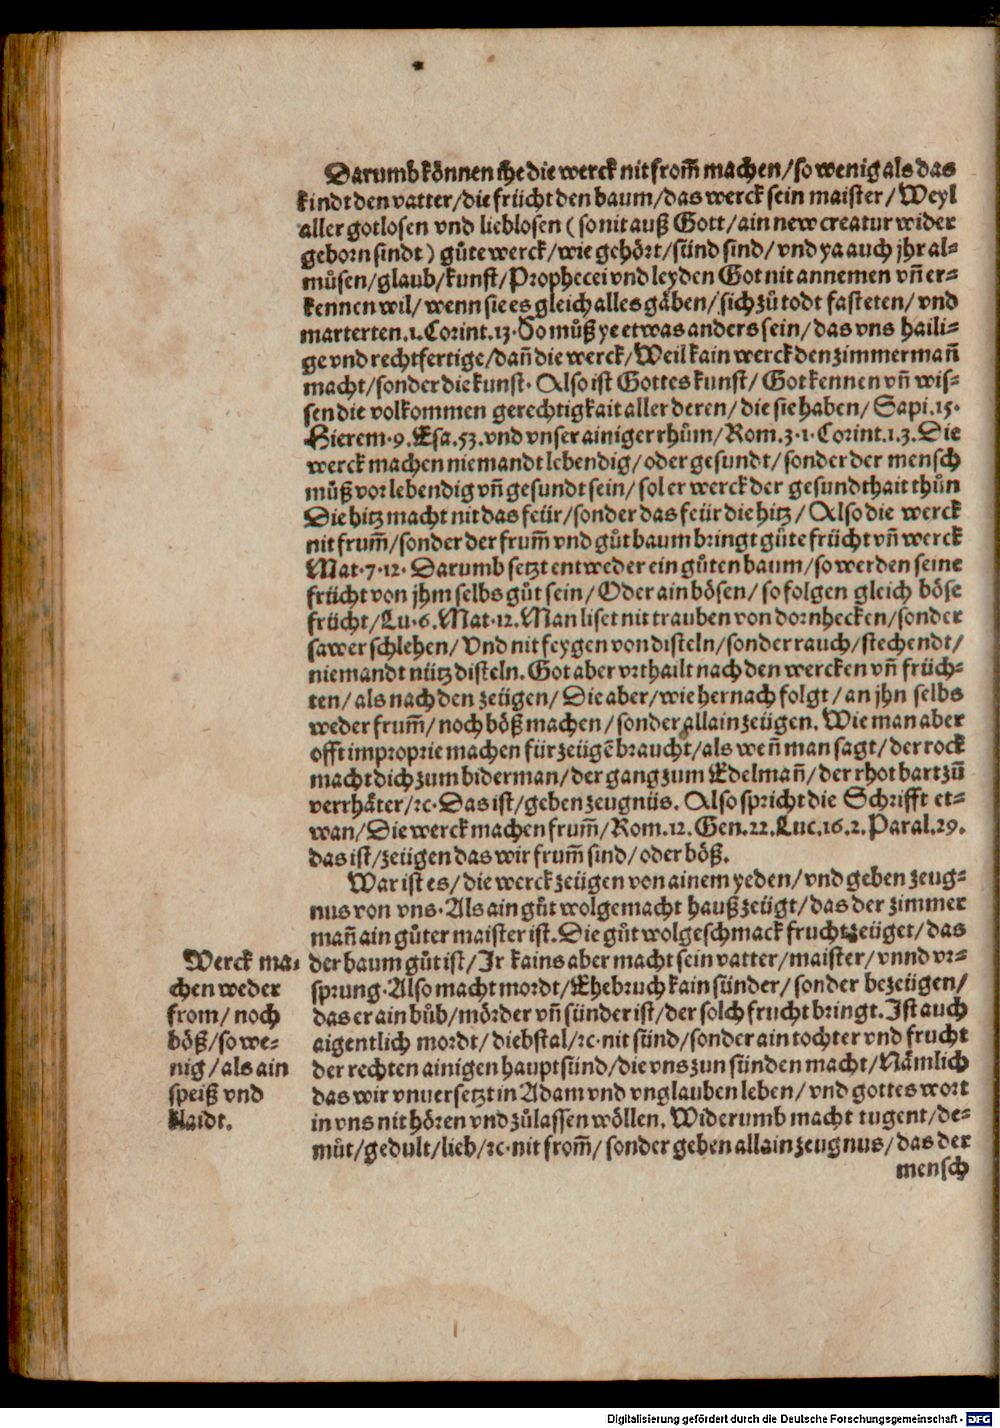 Darumb können jhe die werck nit from̃ machen/ so wenig als das
kindt den vatter/ die frücht den baum/ das werck sein maister/ Weyl
aller gotlosen vnd lieblosen ( so nit auß Gott/ ain new creatur wider
geborn sindt ) gůte werck/ wie gehört/ sünd sind/ vnd ya auch jhr al⸗
můsen/ glaub/ kunst/ Prophecei vnd leyden Got nit annemen vñ er⸗
kennen wil/ wenn sie es gleich alles gäben/ sich zů todt fasteten/ vnd
marterten.1. Corint.13. So můß ye etwas anders sein/ das vns haili⸗
ge vnd rechtfertige/ dañ die werck/ Weil kain werck den zimmermañ
macht/ sonder die kunst. Also ist Gottes kunst/ Got kennen vñ wis⸗
sen die volkommen gerechtigkait aller deren/ die sie haben/ Sapi.15.
Hierem.9. Esa.53. vnd vnser ainiger rhům/ Rom.3.1. Corint.1.3. Die
werck machen niemandt lebendig/ oder gesundt/ sonder der mensch
můß vor lebendig vñ gesundt sein/ sol er werck der gesundthait thůn
Die hitz macht nit das feür/ sonder das feür die hitz/ Also die werck
nit frum̃/ sonder der frum̃ vnd gůt baum bringt gůte frücht vñ werck
Mat.7.12. Darumb setzt entweder ein gůten baum/ so werden seine
frücht von jhm selbs gůt sein/ Oder ain bösen/ so folgen gleich böse
frücht/ Lu.6. Mat.12. Man liset nit trauben von dornhecken/ sonder
sawer schlehen/ Vnd nit feygen von disteln/ sonder rauch/ stechendt/
niemandt nütz disteln. Got aber vrthailt nach den wercken vñ früch⸗
ten/ als nach den zeügen/ Die aber/ wie hernach folgt/ an jhn selbs
weder frum̃/ noch böß machen/ sonder allain zeügen. Wie man aber
offt improprie machen für zeügẽ braucht/ als weñ man sagt/ der rock
macht dich zum biderman/ der gang zum Edelmañ/ der rhot bart zů
verrhäter/ ⁊c. Das ist/ geben zeugnüs. Also spricht die Schrifft et⸗
wan/ Die werck machen frum̃/ Rom.12. Gen.22. Luc.16.2. Paral.29.
das ist/ zeügen das wir frum̃ sind/ oder böß.
War ist es/ die werck zeügen von ainem yeden/ vnd geben zeug⸗
nus von vns. Als ain gůt wolgemacht hauß zeügt/ das der zimmer
mañ ain gůter maister ist. Die gůt wolgeschmack frucht zeüget/ das
der baum gůt ist/ Jr kains aber macht sein vatter/ maister/ vnnd vr⸗
sprung. Also macht mordt/ Ehebruch kain sünder/ sonder bezeügen/
das er ain bůb/ mörder vñ sünder ist/ der solch frucht bringt. Ist auch
aigentlich mordt/ diebstal/ ⁊c. nit sünd/ sonder ain tochter vnd frucht
der rechten ainigen hauptsünd/ die vns zun sünden macht/ Nämlich
das wir vnuersetzt in Adam vnd vnglauben leben/ vnd gottes wort
in vns nit hören vnd zůlassen wöllen. Widerumb macht tugent/ de⸗
můt/ gedult/ lieb/ ⁊c. nit from̃/ sonder geben allain zeugnus/ das der
mensch
Werck ma⸗
chen weder
from/ noch
böß/ so we⸗
nig/ als ain
speiß vnd
klaidt.
Digitalisierung gefördert durch die Deutsche Forschungsgemeinschaft - DFG